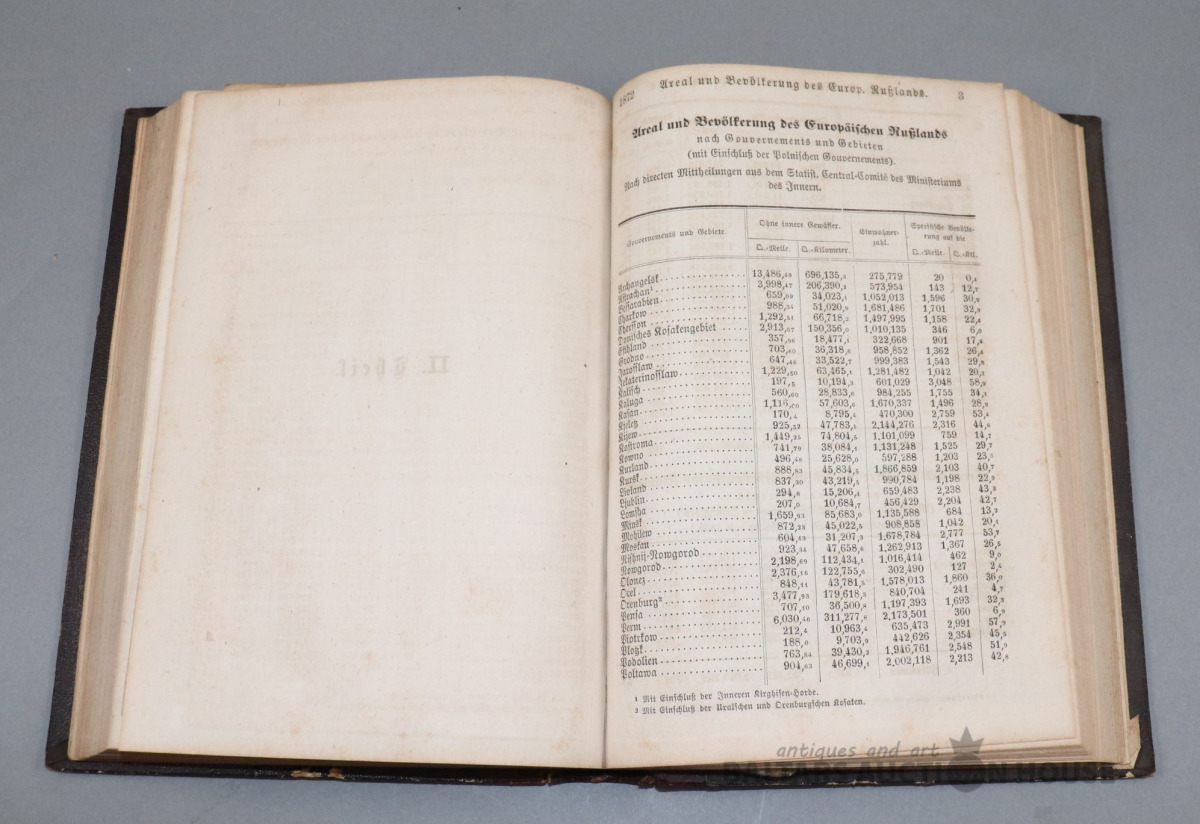 1872 Areal und Bevölkerung des Europ. Rußlands. 3
Areal und Bevölkerung des Europäischen Rußlands
nach Gouvernements und Gebieten
(mit Einschluß der Polnischen Gouvernements).
Nach directen Mittheilungen aus dem Statist. Central-Comité des Ministeriums
des Innern.
Gouvernements und Gebiete. Ohne innere Gewässer. Einwohner-zahl. Specifische Bevölke-rung auf die
□.-Meile. □.-Kilometer. □.-Meile. □.-Kil.
Archangelsk 13,486,48 696,135,3 275,779 20 0,4
Astrachan¹ 3,998,47 206,390,2 573,954 143 12,7
Bessarabien 659,09 34,023,1 1,052,013 1,596 30,9
Charkow 988,34 51,020,9 1,681,486 1,701 32,9
Chersson 1,292,51 66,718,2 1,497,995 1,158 22,4
Donisches Kosakengebiet 2,913,07 150,356,0 1,010,135 346 6,9
Esthland 357,96 18,477,1 322,668 901 17,4
Grodno 703,60 36,318,6 958,852 1,362 26,4
Jarosslaw 647,46 33,522,7 999,383 1,543 29,8
Jekaterinosslaw 1,229,50 63,465,1 1,281,482 1,042 20,2
Kalisch 197,5 10,194,3 601,029 3,048 58,9
Kaluga 560,60 28,833,6 984,255 1,755 34,1
Kasan 1,116,00 57,603,6 1,670,337 1,496 28,9
Kjeletz 170,4 8,795,4 470,300 2,759 53,4
Kijew 925,52 47,783,4 2,144,276 2,316 44,8
Kostroma 1,449,25 74,804,5 1,101,099 759 14,7
Kowno 741,79 38,084,1 1,131,248 1,525 29,7
Kurland 496,48 25,628,0 597,288 1,203 23,3
Kursk 888,83 45,834,5 1,866,859 2,103 40,7
Livland 837,30 43,219,5 990,784 1,198 22,9
Ljublin 294,6 15,206,4 659,483 2,238 43,3
Lomsha 207,0 10,684,7 456,429 2,204 42,7
Minsk 1,659,93 85,683,0 1,135,588 684 13,2
Mohilew 872,23 45,022,5 908,858 1,042 20,1
Moskau 604,43 31,207,3 1,678,784 2,777 53,7
Nishnij-Nowgorod 923,34 47,658,6 1,262,913 1,367 26,5
Nowgorod 2,198,69 112,434,1 1,016,414 462 9,0
Olonez 2,376,16 122,755,6 302,490 127 2,4
Orel 848,41 43,781,5 1,578,013 1,860 36,0
Orenburg² 3,477,93 179,618,3 840,704 241 4,7
Pensa 707,10 36,500,8 1,197,393 1,693 32,8
Perm 6,030,46 311,277,6 2,173,501 360 6,9
Piotrkow 212,4 10,963,4 635,473 2,991 57,9
Plozk 188,0 9,703,9 442,626 2,354 45,5
Podolien 763,84 39,430,2 1,946,761 2,548 51,9
Poltawa 904,63 46,699,1 2,002,118 2,213 42,8
¹ Mit Einschluß der Inneren Kirghisen-Horde.
² Mit Einschluß der Uralschen und Orenburgschen Kosaken.
II. Theil.
antiques and art
BALZARS AUCTION HOUSE